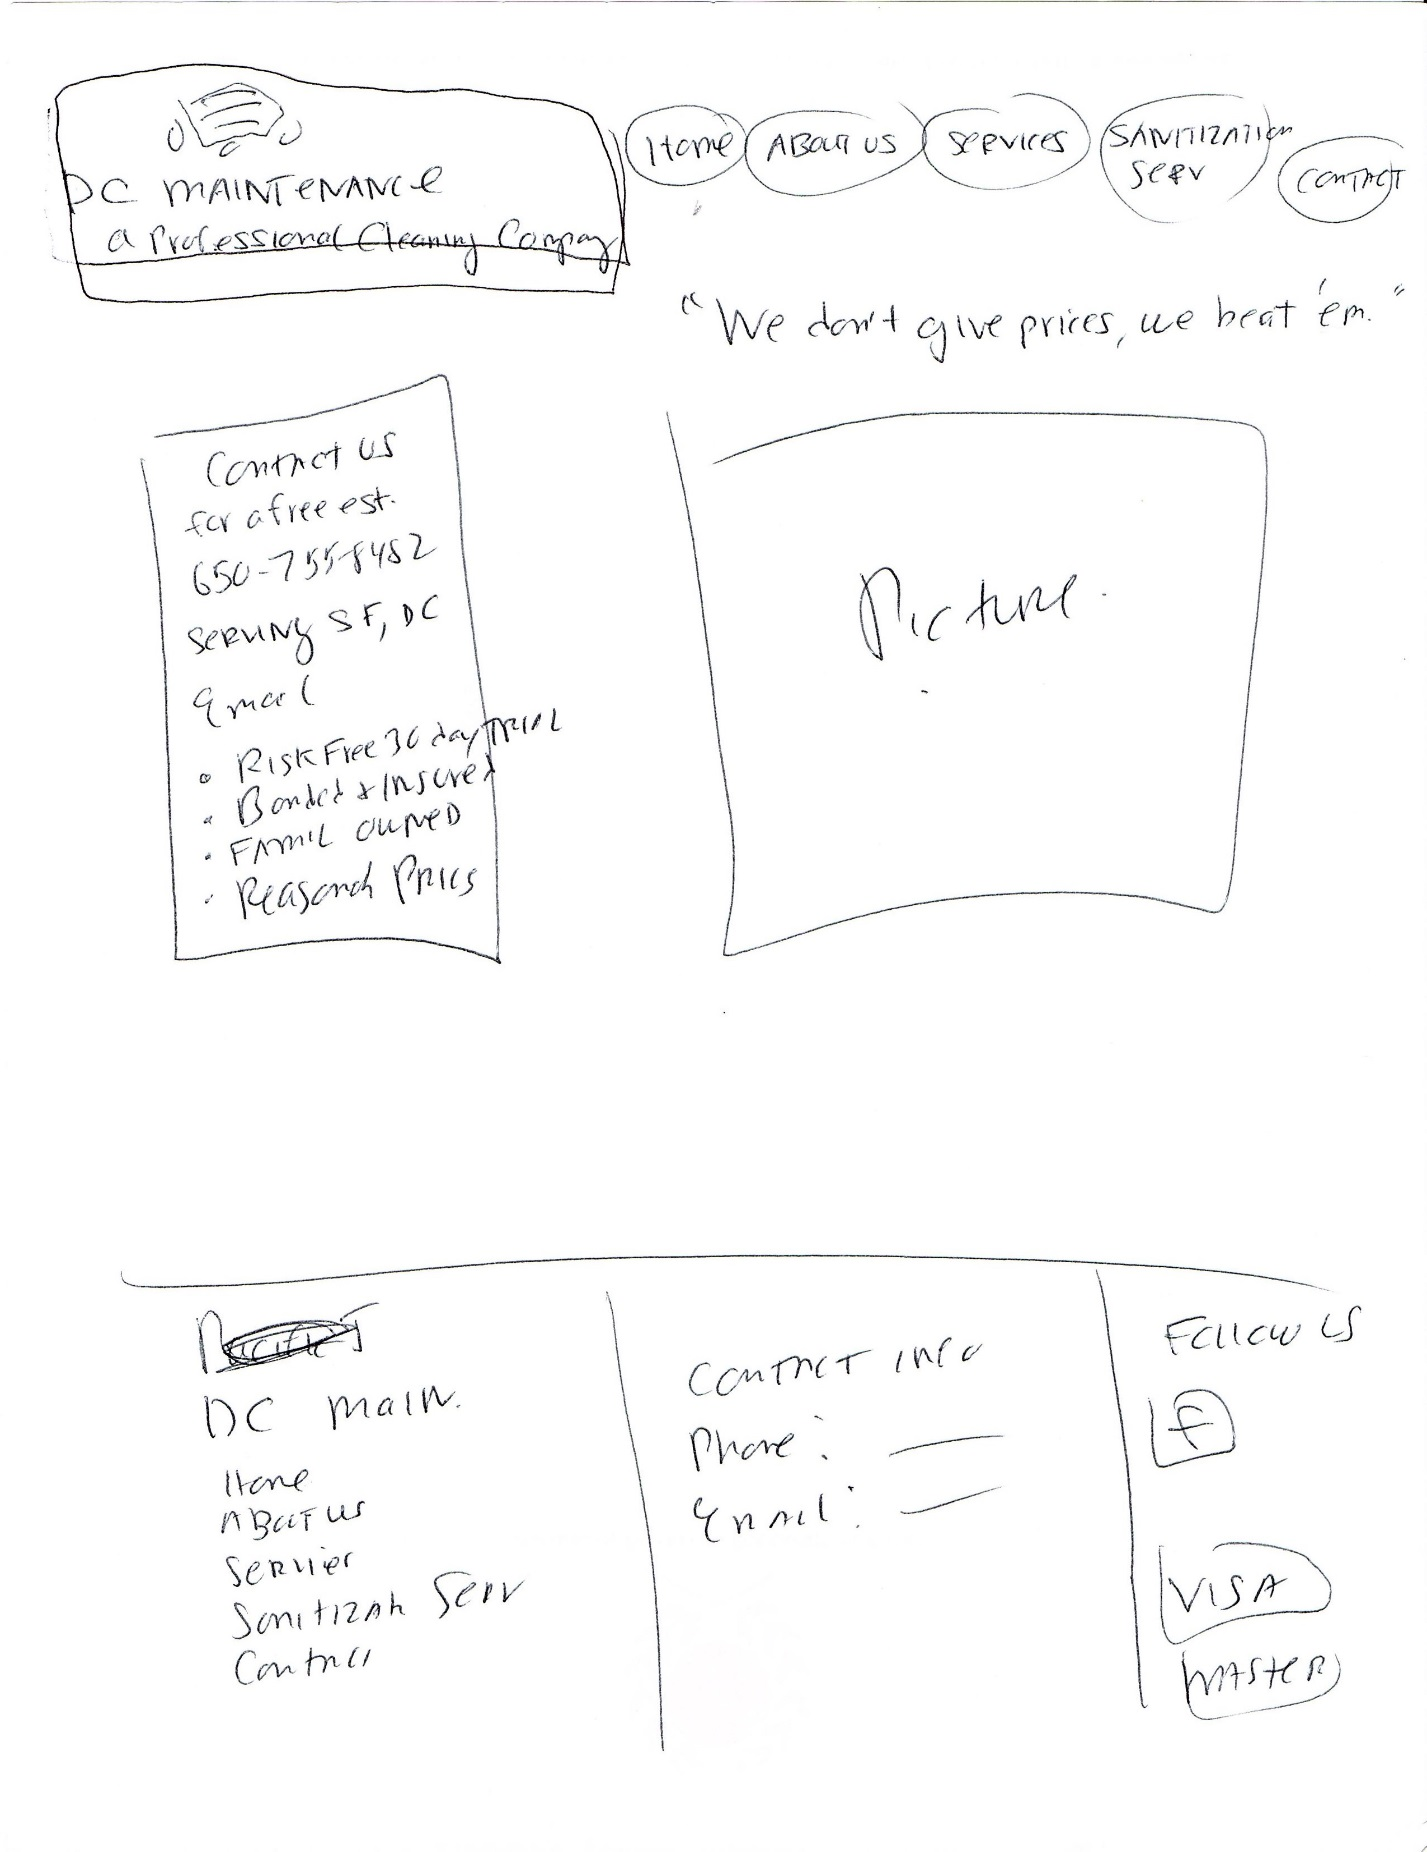 DC MAINTENANCE
a Professional Cleaning Compay
Home
ABOUT US
SERVICES
SANITIZATION
SERV
CONTACT
"We don't give prices, we beat 'em."
Contact US
for a free est.
650-755-8482
SERVING SF, DC
Email
• RISK Free 30 day TRIAL
• Bonded & INSURED
• FAMIL OWNED
• REASONAh PRICS
Picture.
DC MAIN.
Home
ABOUT US
Servier
Sanitizah Serv
Contact
CONTACT INFO
Phone:
Email:
Follow US
f
VISA
MASTER